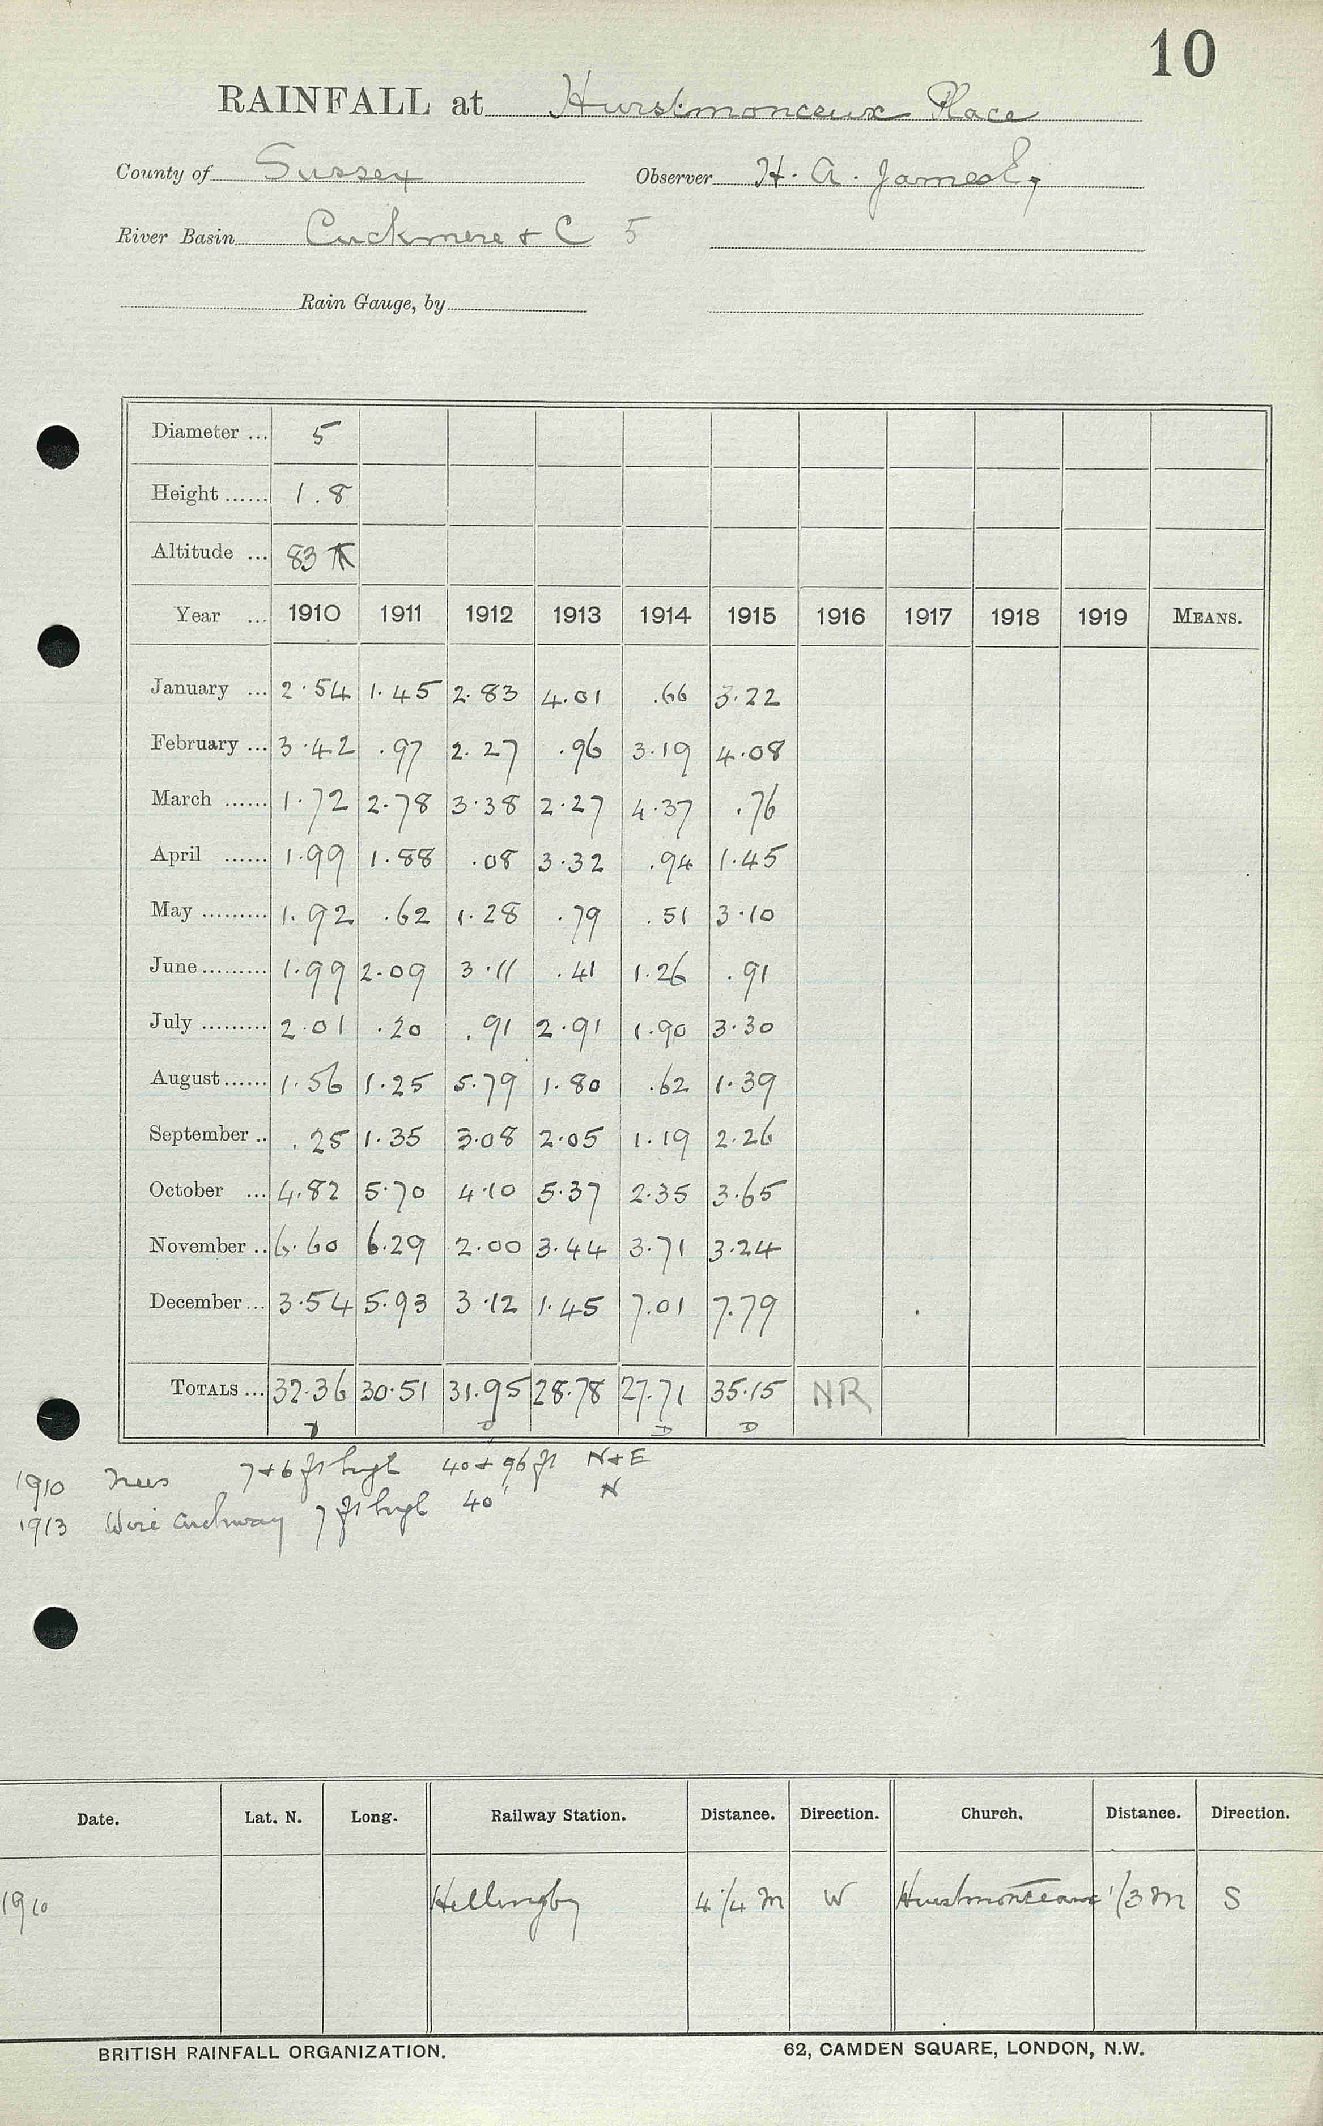 10
RAINFALL at Hurstmonceux Place
County of Sussex Observer H. A. James Esq
River Basin Cuckmere & C 5
Rain Gauge, by
Diameter ... 5
Height ...... 1.8
Altitude ... 83
Year ... 1910 1911 1912 1913 1914 1915 1916 1917 1918 1919 MEANS.
January ... 2.54 1.45 2.83 4.01 .66 3.22
February ... 3.42 .97 2.27 .96 3.19 4.08
March ...... 1.72 2.78 3.38 2.27 4.37 .76
April ...... 1.99 1.88 .08 3.32 .94 1.45
May ......... 1.92 .62 1.28 .79 .51 3.10
June......... 1.99 2.09 3.11 .41 1.26 .91
July ......... 2.01 .20 .91 2.91 1.90 3.30
August...... 1.56 1.25 5.79 1.80 .62 1.39
September .. .25 1.35 3.08 2.05 1.19 2.26
October ... 4.82 5.70 4.10 5.37 2.35 3.65
November .. 6.60 6.29 2.00 3.44 3.71 3.24
December... 3.54 5.93 3.12 1.45 7.01 7.79
TOTALS ... 32.36 30.51 31.95 28.78 27.71 35.15 NR
D D D
1910 Trees 7 + 6 ft high 40 + 96 ft N + E
1913 Wire archway 7 ft high 40' N
Date. Lat. N. Long. Railway Station. Distance. Direction. Church. Distance. Direction.
1910 Hellingby 4 1/4 m W Hurstmonceaux 1/3 m S
BRITISH RAINFALL ORGANIZATION. 62, CAMDEN SQUARE, LONDON, N.W.